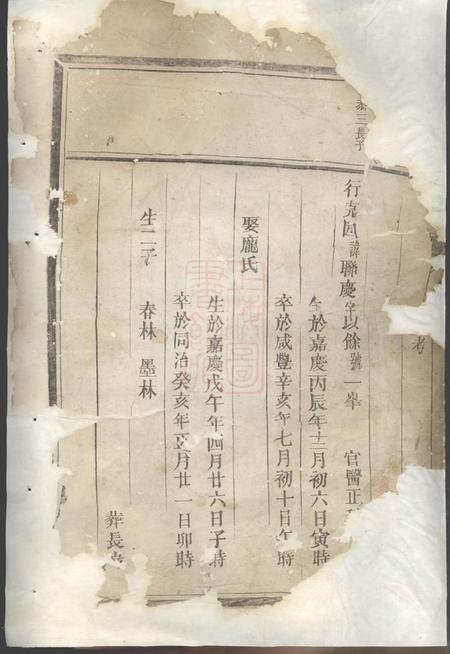 考
泰三長子
行 諱聯慶字以餘號一峯 官醫正
生於嘉慶丙辰年十二月初六日寅時
卒於咸豐辛亥年七月初十日午時
娶龐氏
生於嘉慶戊午年四月廿六日子時
卒於同治癸亥年正月廿一日卯時
生二子 春林 墨林
葬長